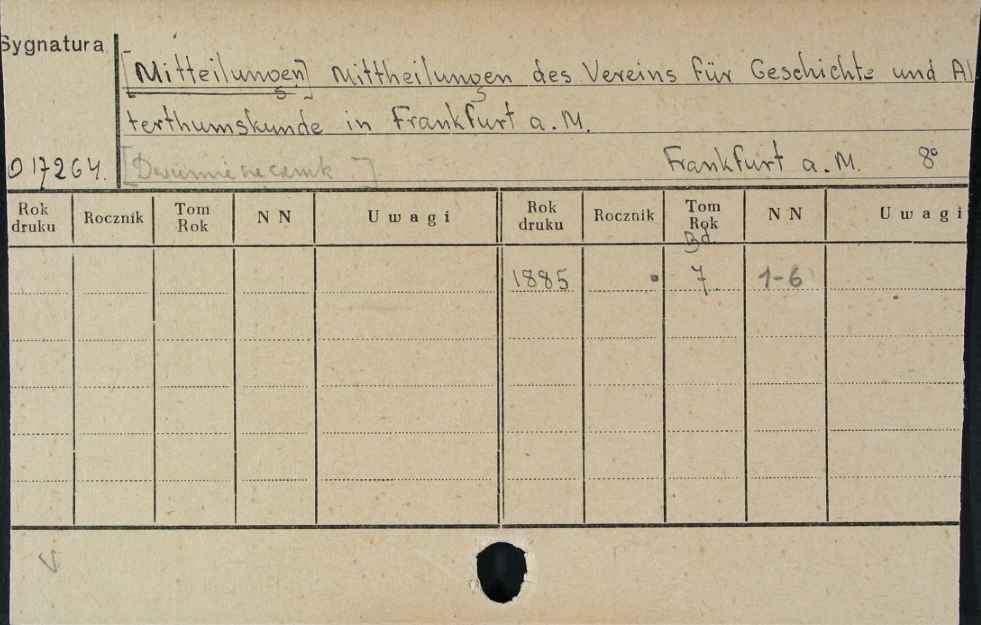 Sygnatura
[Mitteilungen] Mittheilungen des Vereins für Geschichte und Al
terthumskunde in Frankfurt a. M.
017264. [Dwumiesięcznik] Frankfurt a. M. 8°
Rok druku Rocznik Tom Rok NN Uwagi Rok druku Rocznik Tom Rok NN Uwagi
Bd.
1885 7. 1-6
V